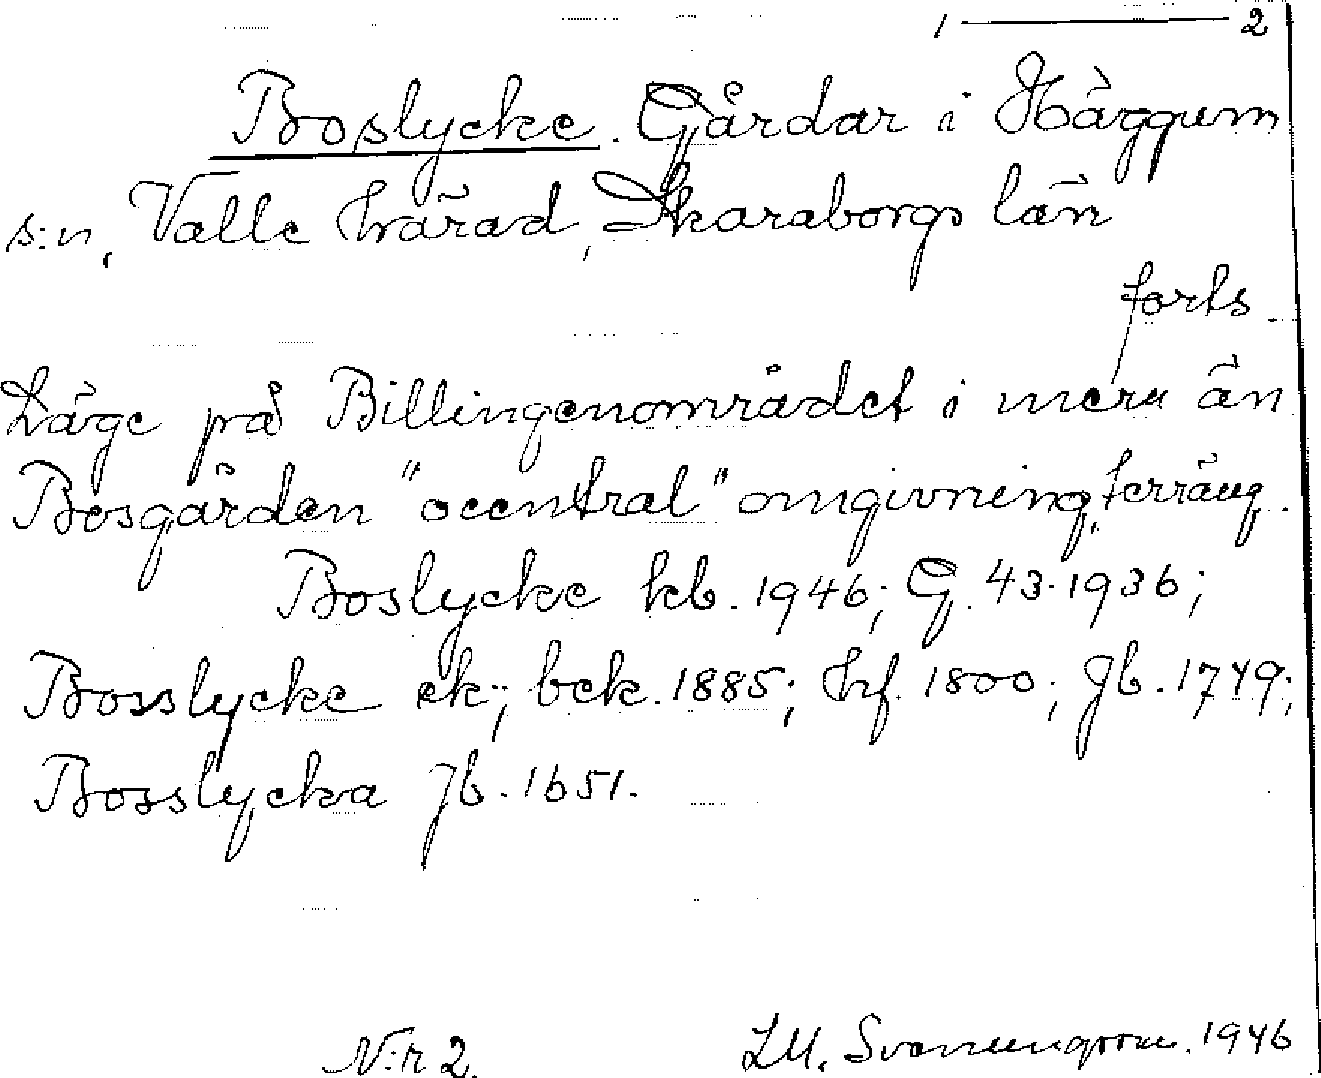 1 — 2
Boslycke. Gårdar i Häggum
s:n, Valle härad, Skaraborgs län
forts.
Läge på Billingenområdet i mera än
Bosgården "ocentral" omgivning, terräng.
Boslycke kb. 1946; G. 43. 1936;
Bosslycke ek; bek. 1885; hf. 1800; Jb. 1749;
Bosslycka Jb. 1651.
N:r 2. LM. Svanungsson. 1946